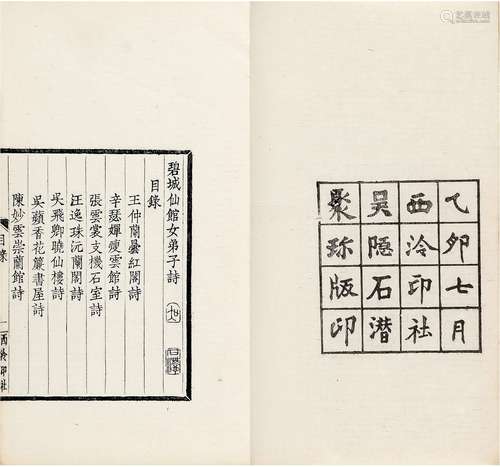 乙卯七月
西泠印社
吴隐石潜
聚珍版印
碧城仙館女弟子詩
目錄
王仲蘭曇紅閣詩
辛瑟嬋瘦雲館詩
張雲裳支機石室詩
汪逸珠沅蘭閣詩
吳飛卿曉仙樓詩
吳蘋香花簾書屋詩
陳妙雲崇蘭館詩
目錄
一
西泠印社